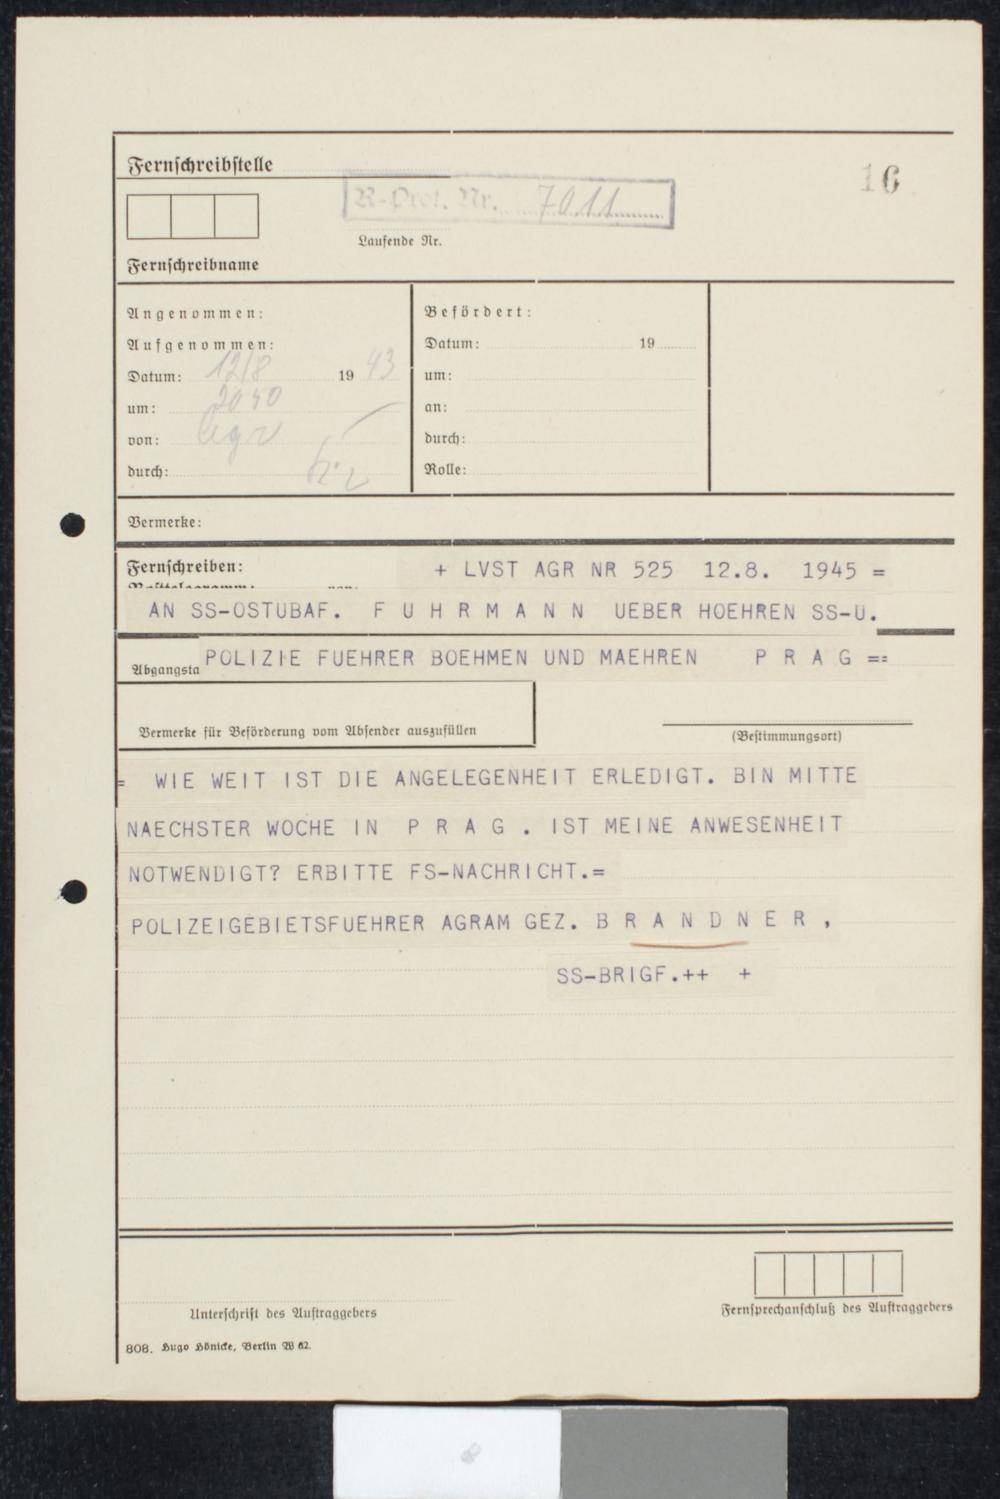 Fernschreibstelle
16
R-Prot. Nr. 7011
Laufende Nr.
Fernschreibname
Angenommen:
Aufgenommen:
Datum: 12/8 19 43
um: 2040
von: Agr
durch:
Befördert:
Datum: 19
um:
an:
durch:
Rolle:
Vermerke:
Fernschreiben: + LVST AGR NR 525 12.8. 1945 =
AN SS-OSTUBAF. F U H R M A N N UEBER HOEHREN SS-U.
Abgangsta POLIZIE FUEHRER BOEHMEN UND MAEHREN P R A G ==
Vermerke für Beförderung vom Absender auszufüllen
(Bestimmungsort)
= WIE WEIT IST DIE ANGELEGENHEIT ERLEDIGT. BIN MITTE
NAECHSTER WOCHE IN P R A G . IST MEINE ANWESENHEIT
NOTWENDIGT? ERBITTE FS-NACHRICHT.=
POLIZEIGEBIETSFUEHRER AGRAM GEZ. B R A N D N E R ,
SS-BRIGF.++ +
Unterschrift des Auftraggebers
Fernsprechanschluß des Auftraggebers
808. Hugo Hönicke, Berlin W 62.